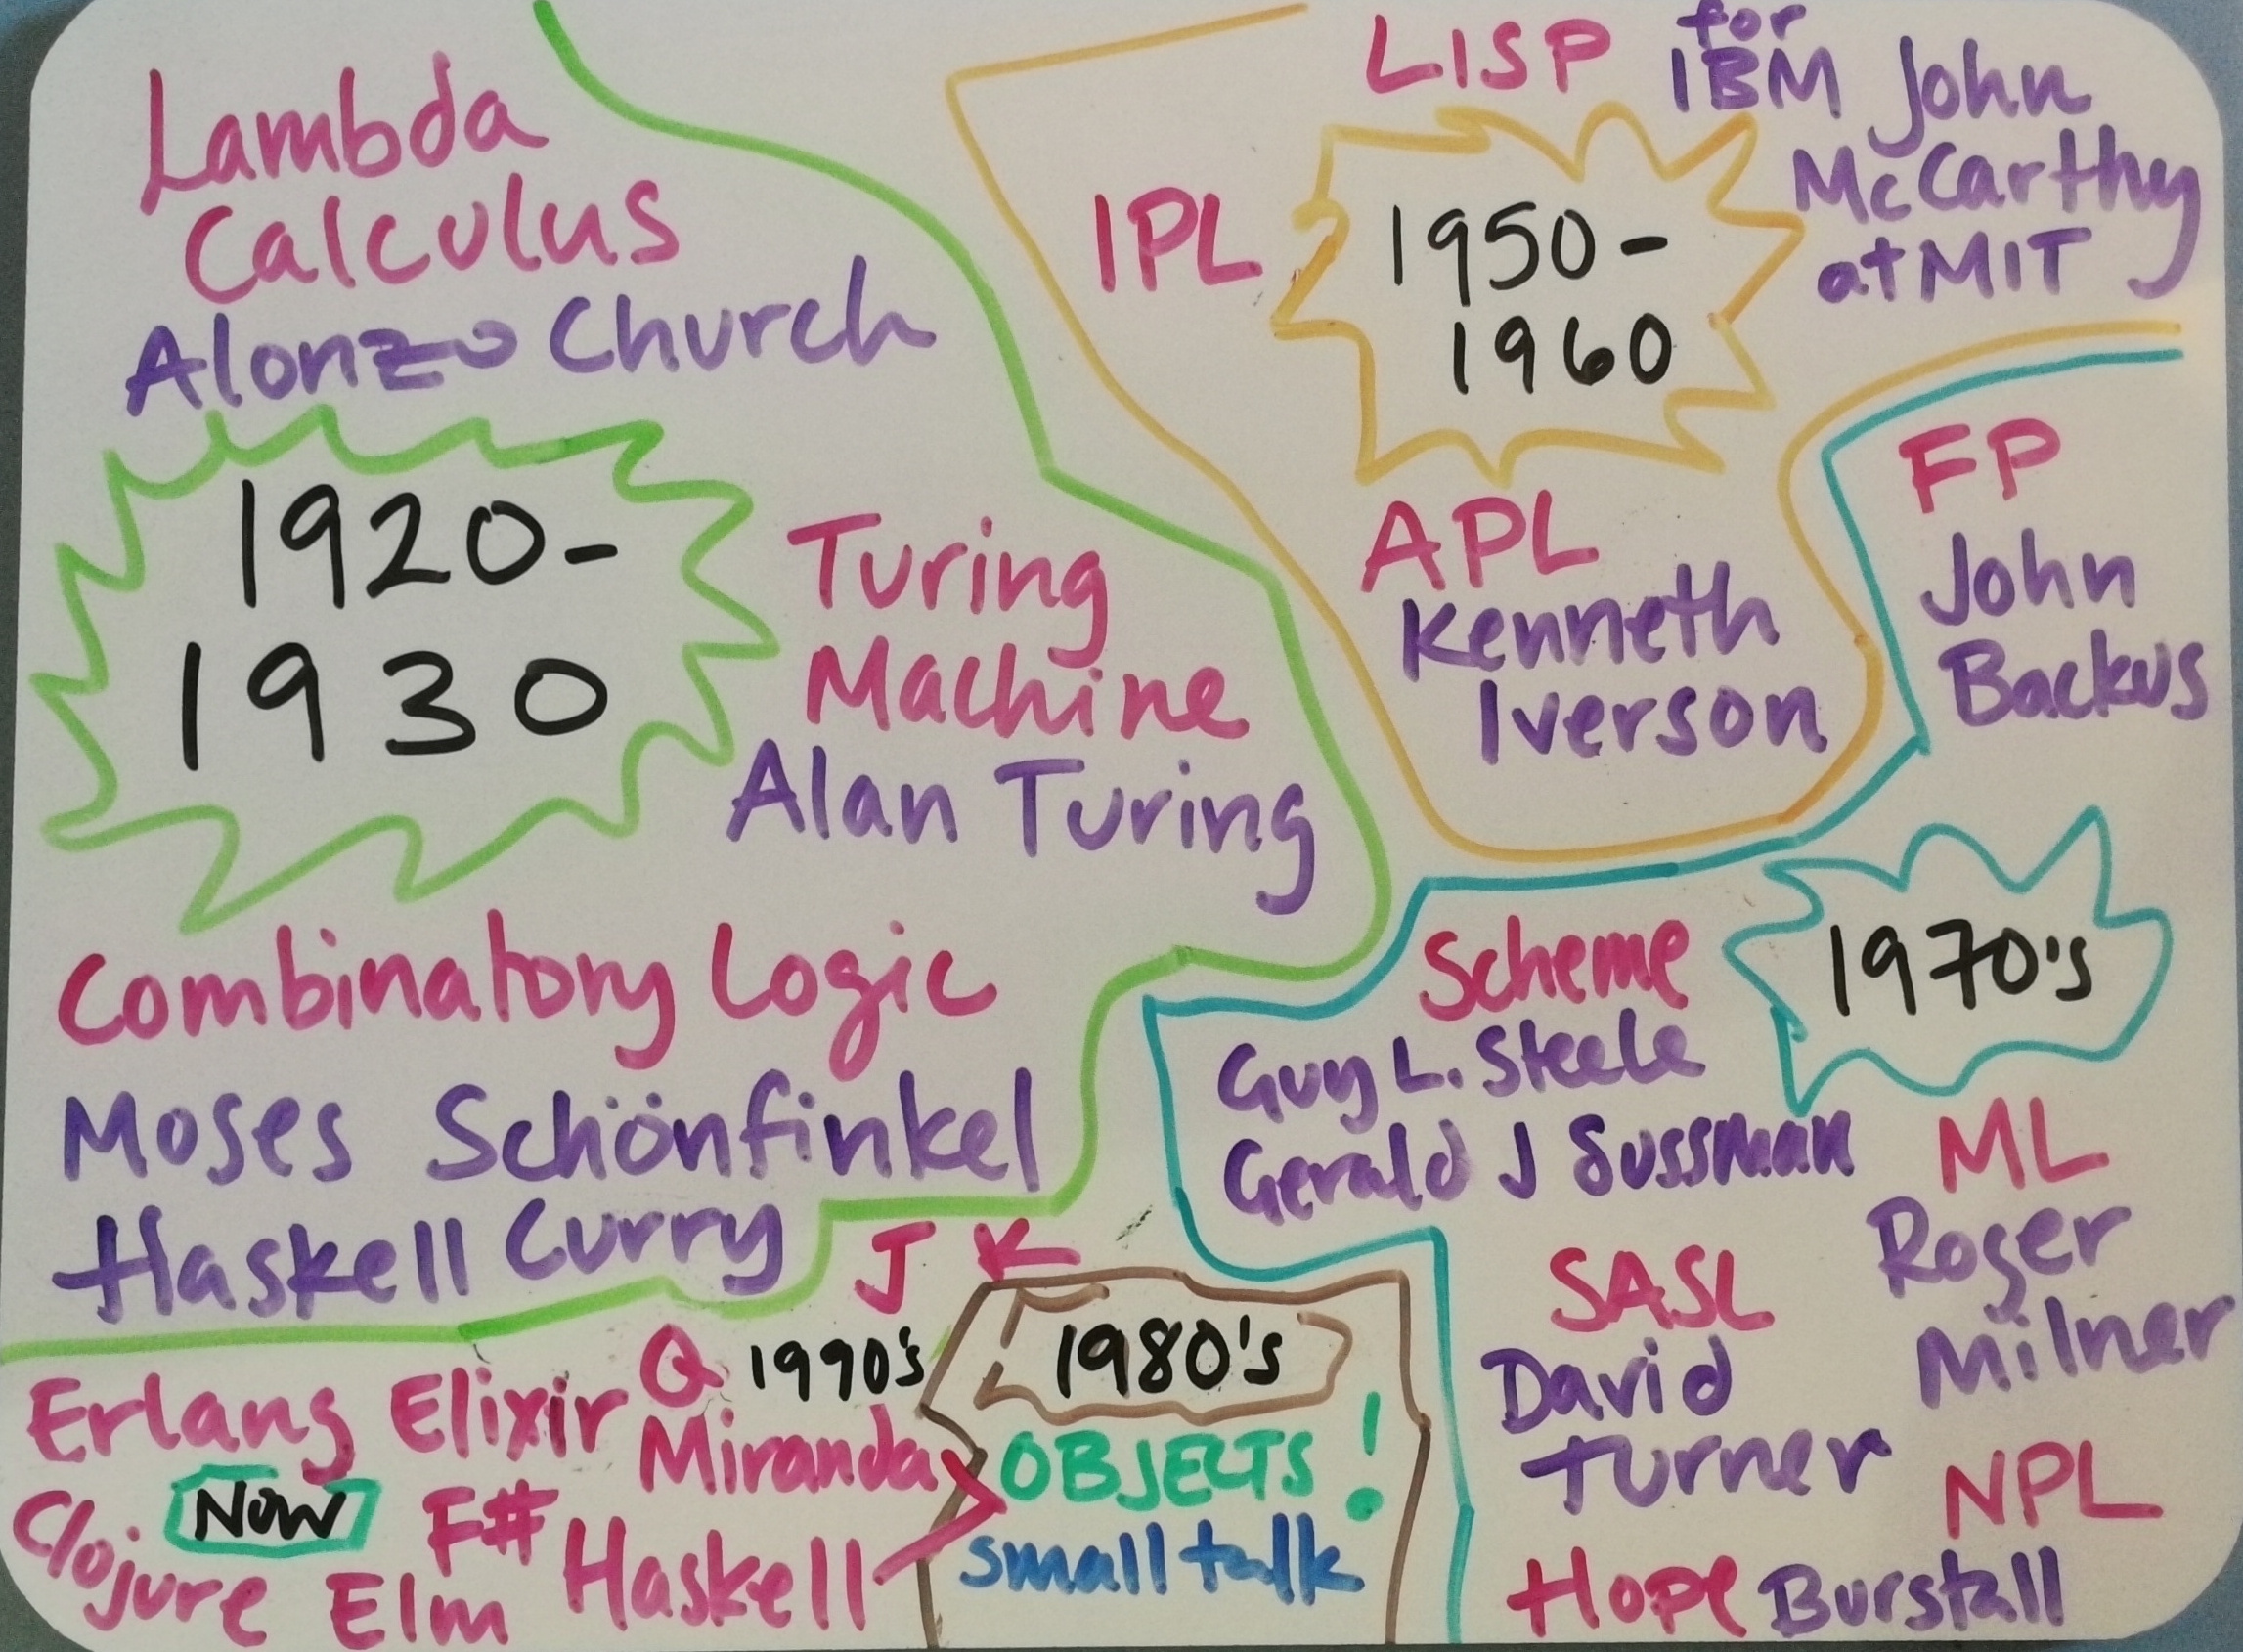 Lambda
Calculus
Alonzo Church
1920-
1930
Turing
Machine
Alan Turing
Combinatory Logic
Moses Schönfinkel
Haskell Curry
LISP for
IBM John
McCarthy
at MIT
IPL
1950-
1960
APL
Kenneth
Iverson
FP
John
Backus
1970's
Scheme
Guy L. Steele
Gerald J Sussman
ML
Roger
Milner
SASL
David
Turner
NPL
Hope Burstall
1980's
OBJECTS!
small talk
J K
Q 1990's
Miranda
Haskell
Erlang Elixir
Now
F#
Clojure Elm